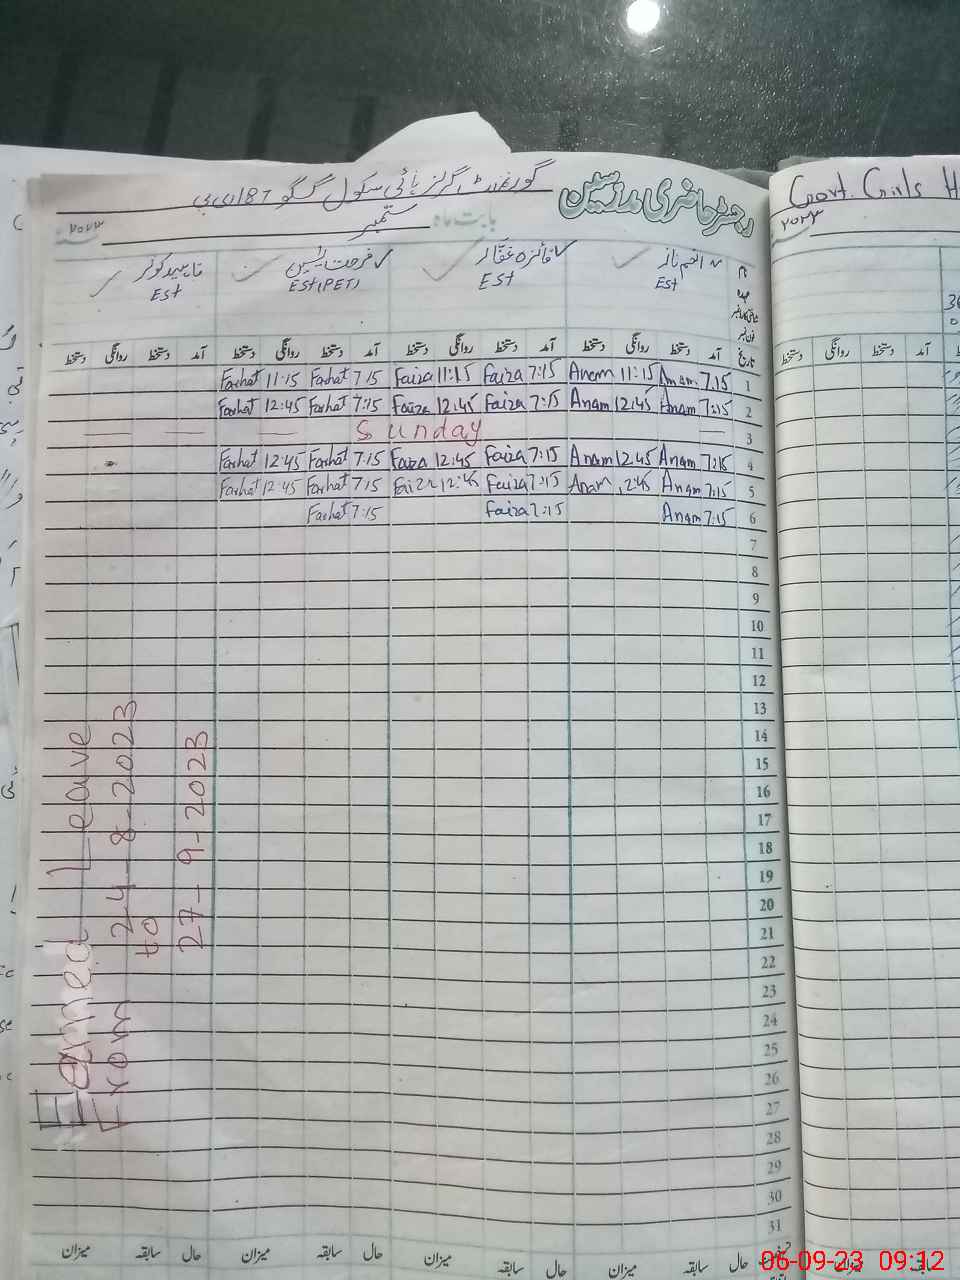 رجسٹر حاضری مدرسین گورنمنٹ گرلز ہائی سکول گگو 187 ای بی
بابت ماہ ستمبر ۲۰۲۳
انعم ناز فائزہ غفار فرحت یٰسین ناہید کوثر
Est Est Est (PET) Est
تاریخ آمد دستخط روانگی دستخط آمد دستخط روانگی دستخط آمد دستخط روانگی دستخط آمد دستخط روانگی دستخط
Farhat 11:15 Farhat 7:15 Faiza 11:15 Faiza 7:15 Anam 11:15 Anam 7:15 1
Farhat 12:45 Farhat 7:15 Faiza 12:45 Faiza 7:15 Anam 12:45 Anam 7:15 2
Sunday 3
Farhat 12:45 Farhat 7:15 Faiza 12:45 Faiza 7:15 Anam 12:45 Anam 7:15 4
Farhat 12:45 Farhat 7:15 Faiza 12:45 Faiza 7:15 Anam 12:45 Anam 7:15 5
Farhat 7:15 Faiza 7:15 Anam 7:15 6
7
8
9
10
11
12
13
14
15
16
17
18
19
20
21
22
23
24
25
26
27
28
29
30
31
Earned Leave
From 24-8-2023
to
27-9-2023
حال سابقہ میزان حال سابقہ میزان حال سابقہ میزان حال سابقہ میزان
Govt. Girls H
۲۰۲۳
دستخط روانگی دستخط آمد
سابقہ
06-09-23 09:12